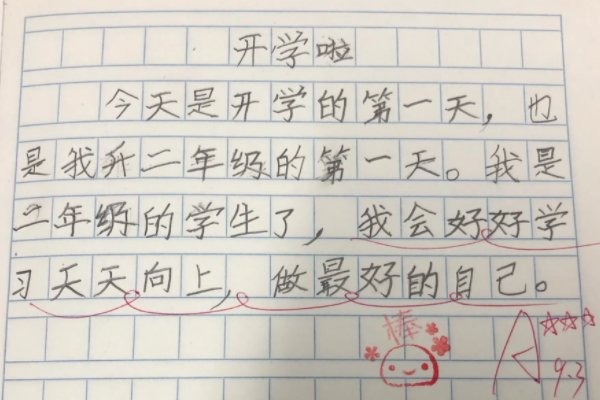 开学啦
今天是开学的第一天，也
是我升二年级的第一天。我是
二年级的学生了，我会好好学
习天天向上，做最好的自己。
棒
A☆☆☆
9.3